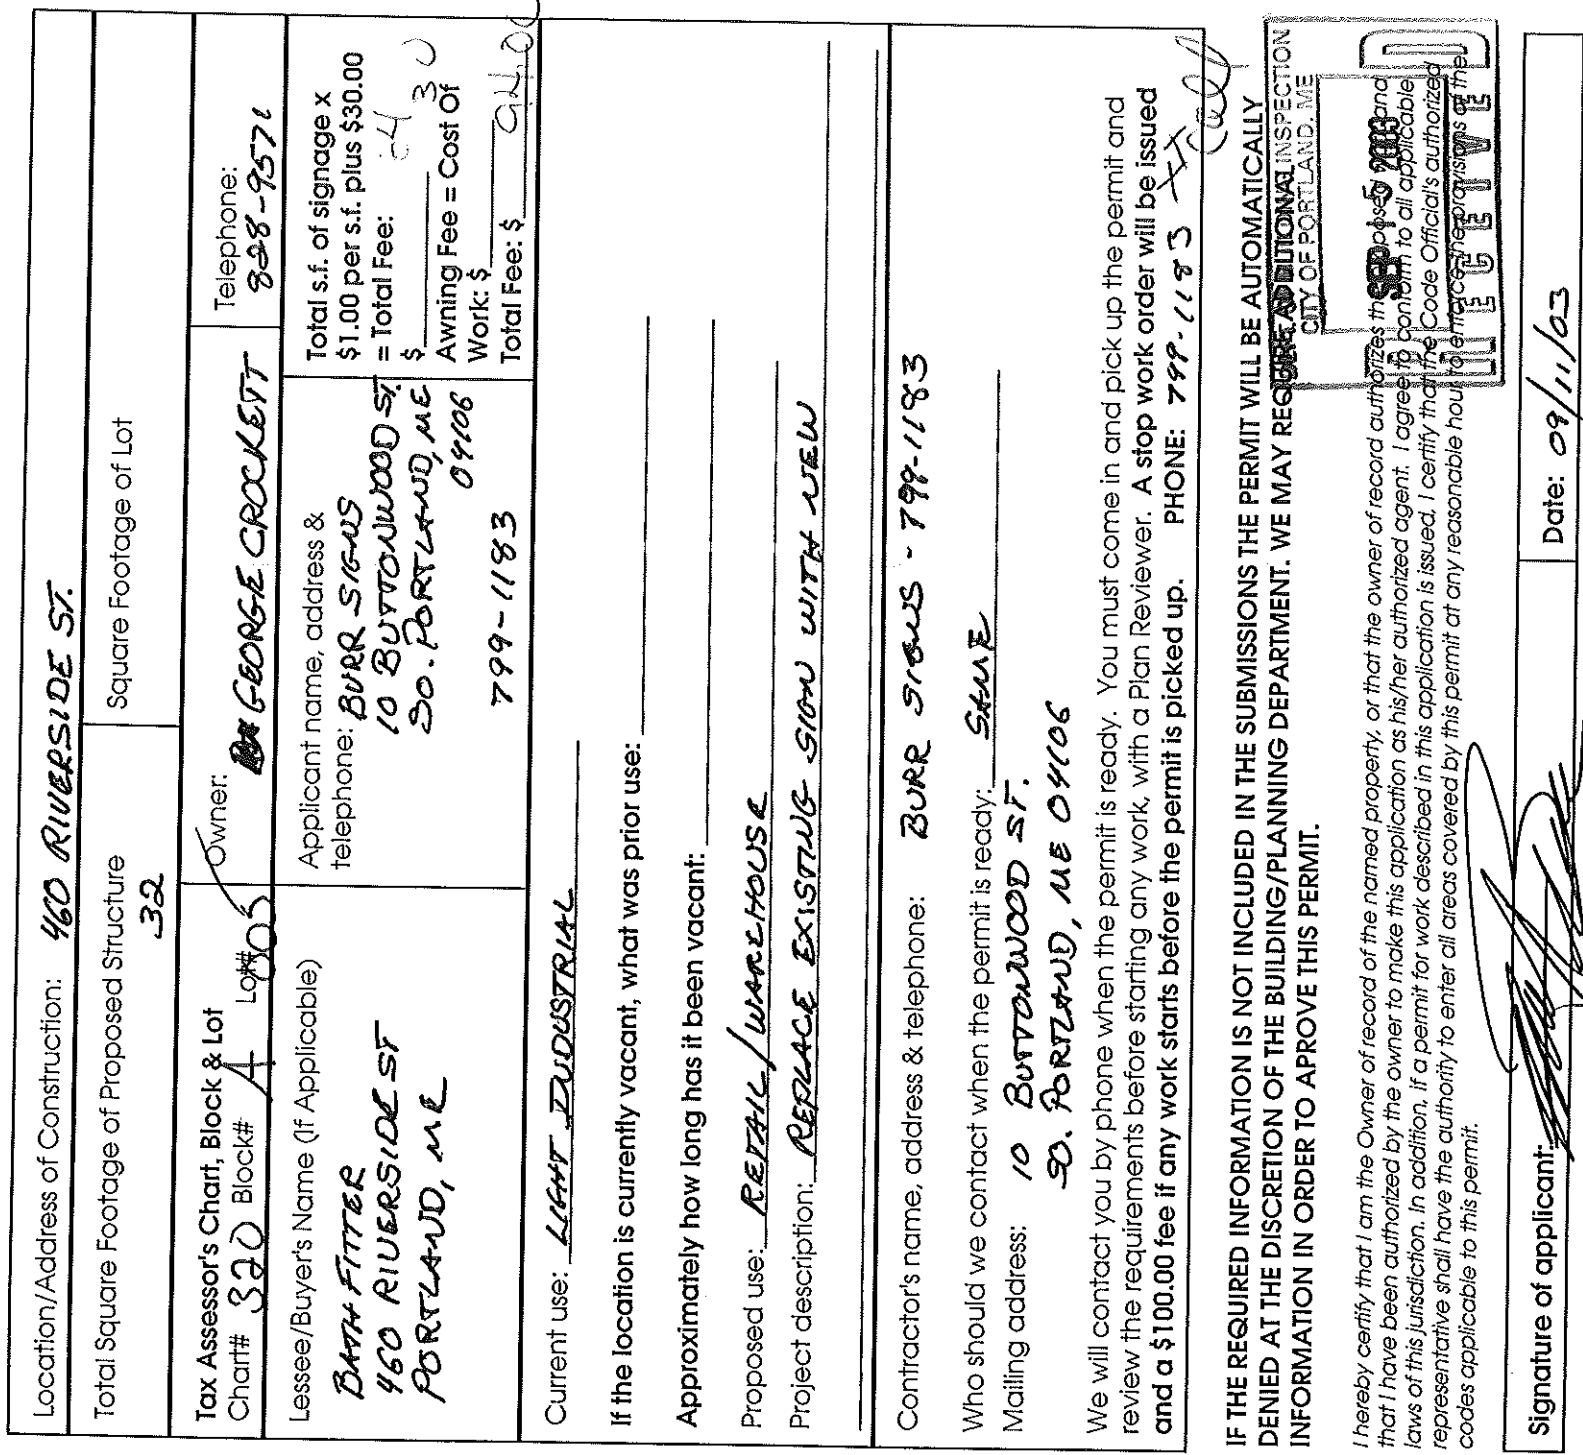 Location/Address of Construction: 460 RIVERSIDE ST.
Total Square Footage of Proposed Structure
32
Square Footage of Lot
Tax Assessor's Chart, Block & Lot
Chart# 320 Block# A Lot# 005
Owner: GEORGE CROCKETT
Telephone:
828-9571
Lessee/Buyer's Name (If Applicable)
BATH FITTER
460 RIVERSIDE ST
PORTLAND, ME
Applicant name, address &
telephone: BURR SIGNS
10 BUTTONWOOD ST.
SO. PORTLAND, ME
04106
799-1183
Total s.f. of signage x
$1.00 per s.f. plus $30.00
= Total Fee:
$ 30
Awning Fee = Cost Of
Work: $
Total Fee: $
Current use: LIGHT INDUSTRIAL
If the location is currently vacant, what was prior use:
Approximately how long has it been vacant:
Proposed use: RETAIL/WAREHOUSE
Project description: REPLACE EXISTING SIGN WITH NEW
Contractor's name, address & telephone: BURR SIGNS - 799-1183
Who should we contact when the permit is ready: SAME
Mailing address: 10 BUTTONWOOD ST.
SO. PORTLAND, ME 04106
We will contact you by phone when the permit is ready. You must come in and pick up the permit and
review the requirements before starting any work, with a Plan Reviewer. A stop work order will be issued
and a $100.00 fee if any work starts before the permit is picked up. PHONE: 799-1183
call
IF THE REQUIRED INFORMATION IS NOT INCLUDED IN THE SUBMISSIONS THE PERMIT WILL BE AUTOMATICALLY
DENIED AT THE DISCRETION OF THE BUILDING/PLANNING DEPARTMENT. WE MAY REQUIRE ADDITIONAL
INFORMATION IN ORDER TO APROVE THIS PERMIT.
INSPECTION
CITY OF PORTLAND, ME
SEP 15 2003
RECEIVED
I hereby certify that I am the Owner of record of the named property, or that the owner of record authorizes the proposed work and
that I have been authorized by the owner to make this application as his/her authorized agent. I agree to conform to all applicable
laws of this jurisdiction. In addition, if a permit for work described in this application is issued, I certify that the Code Official's authorized
representative shall have the authority to enter all areas covered by this permit at any reasonable hour to enforce the provisions of the
codes applicable to this permit.
Signature of applicant:
Date: 09/11/03